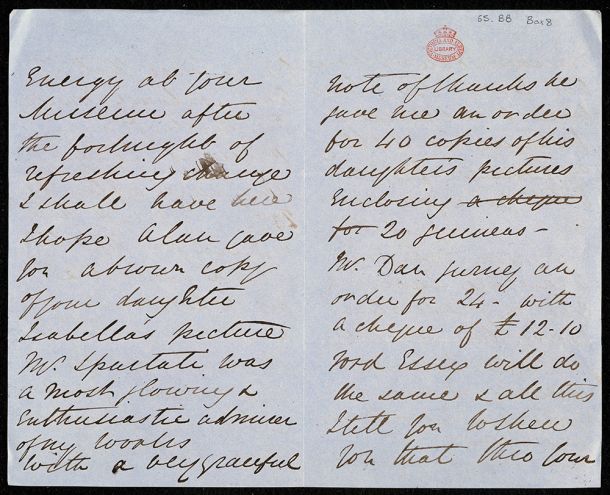 65. BB Box 8
VICTORIA AND ALBERT MUSEUM
LIBRARY
Energy at your
Museum after
the fortnight of
refreshing change
I shall have here
I hope Alan gave
you a brown copy
of your daughter
Isabella's picture
Mr. Spartali was
a most glowing &
Enthusiastic admirer
of my works
With a very graceful
note of thanks he
gave me an order
for 40 copies of his
daughters pictures
Enclosing a cheque
for 20 guineas -
Mr. Dan Gurney an
order for 24 - with
a cheque of £ 12-10
Lord Essex will do
the same & all this
I tell you to shew
you that tho' your